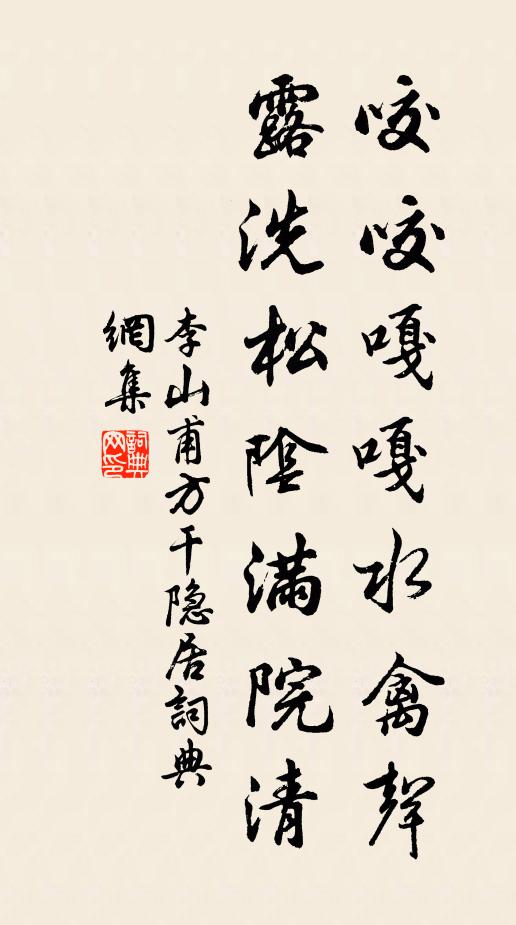 咬咬嘎嘎水禽聲
露洗松陰滿院清
李山甫方干隐居詞典
網集
詞典
网印